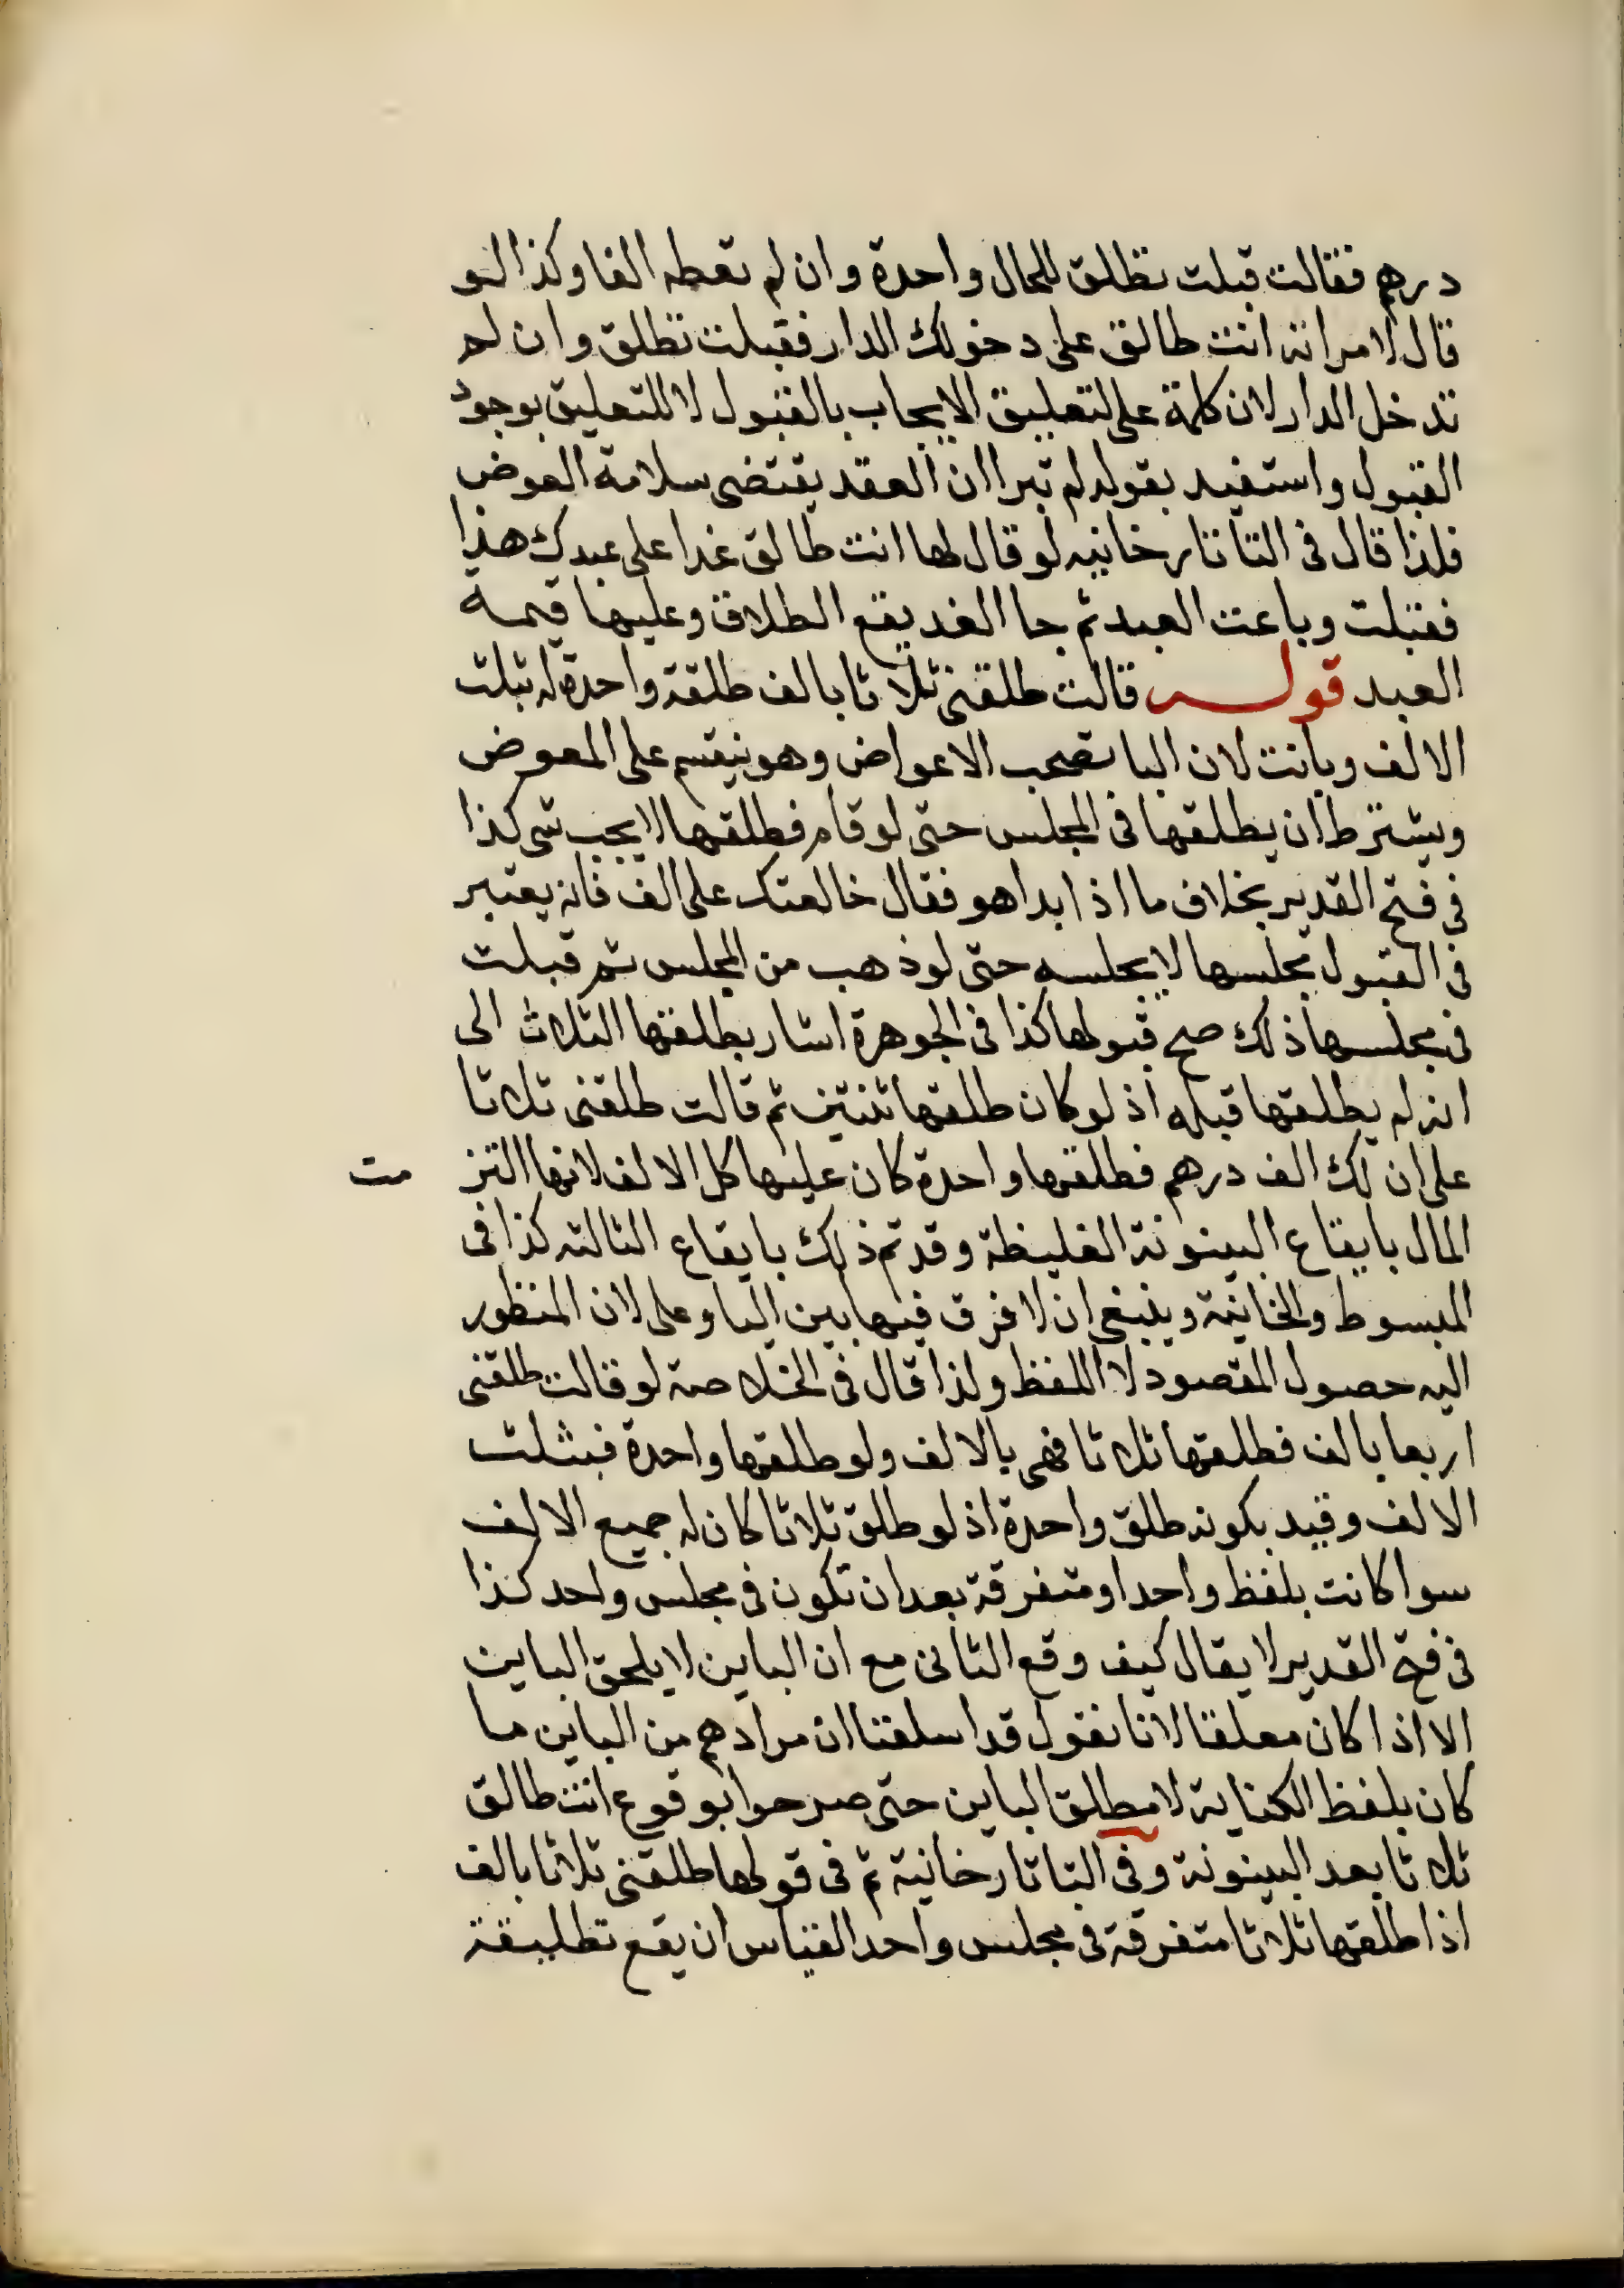 درهم فقالت قبلت تطلق للحال واحدة وان لم تعطه الفا وكذا لو
قال لامراته انت طالق على دخولك الدار فقبلت تطلق وان لم
تدخل الدار لان كلمة على لتعليق الايجاب بالقبول لا للتعليق بوجود
القبول واستفيد بقوله لم تبرا ان العقد يقتضى سلامة العوض
فلذا قال فى التاتارخانيه لو قال لها انت طالق غدا على عبدك هذا
فقبلت وباعت العبد ثم جا الغد يقع الطلاق وعليها قيمة
العبد قوله قالت طلقنى ثلاثا بالف طلقة واحدة له ثلث
الالف وبانت لان البا تصحب الاعواض وهو ينقسم على المعوض
ويشترط ان يطلقها فى المجلس حتى لو قام فطلقها لا يجب شى كذا
فى فتح القدير بخلاف ما اذا بدا هو فقال خالعتك على الف فانه يعتبر
فى القبول مجلسها لا مجلسه حتى لو ذهب من المجلس ثم قبلت
فى مجلسها ذلك صح قبولها كذا فى الجوهرة اشار بطلقها الثلاث الى
انه لم يطلقها قبله اذ لو كان طلقها ثنتين ثم قالت طلقنى ثلاثا
على ان لك الف درهم فطلقها واحدة كان عليها كل الالف لانها التز مت
المال بايقاع البينونة الغليظة وقد تم ذلك بايقاع الثالثه كذا فى
المبسوط والخانية وينبغى ان لا فرق فيها بين البا وعلى لان المنظور
اليه حصول المقصود لا اللفظ ولذا قال فى الخلاصة لو قالت طلقنى
اربعا بالف فطلقها ثلاثا فهى بالالف ولو طلقها واحدة فبثلث
الالف وقيد بكونه طلق واحدة اذ لو طلق ثلاثا كان له جميع الالف
سوا كانت بلفظ واحد او متفرقة بعد ان تكون فى مجلس واحد كذا
فى فتح القدير لا يقال كيف وقع الثانى مع ان الباين لا يلحق الباين
الا اذا كان معلقا لانا نقول قد اسلفنا ان مرادهم من الباين ما
كان بلفظ الكناية لا مطلق الباين حتى صرحوا بوقوع انت طالق
ثلاثا بعد البينونة وفى التاتارخانية ثم فى قولها طلقنى ثلاثا بالف
اذا طلقها ثلاثا متفرقة فى مجلس واحد القياس ان يقع تطليقة